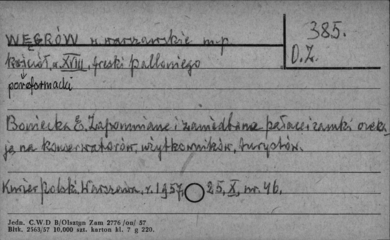 WĘGRÓW n warszawskie m.p.
385.
O.Z.
kościół, w. XVIII, freski Palloniego
poreformacki
Boniecka E. Zapomniane i zaniedbane pałace i zamki czek
ją na konserwatorów, użytkowników, turystów.
Kurier Polski, Warszawa, r. 1957, 25, X, nr. 46.
Jedn. C.W.D B/Olsztyn Zam 2776/ou/57
Bltk. 2563/57 10,000 szt. karton kl. 7 g 220.